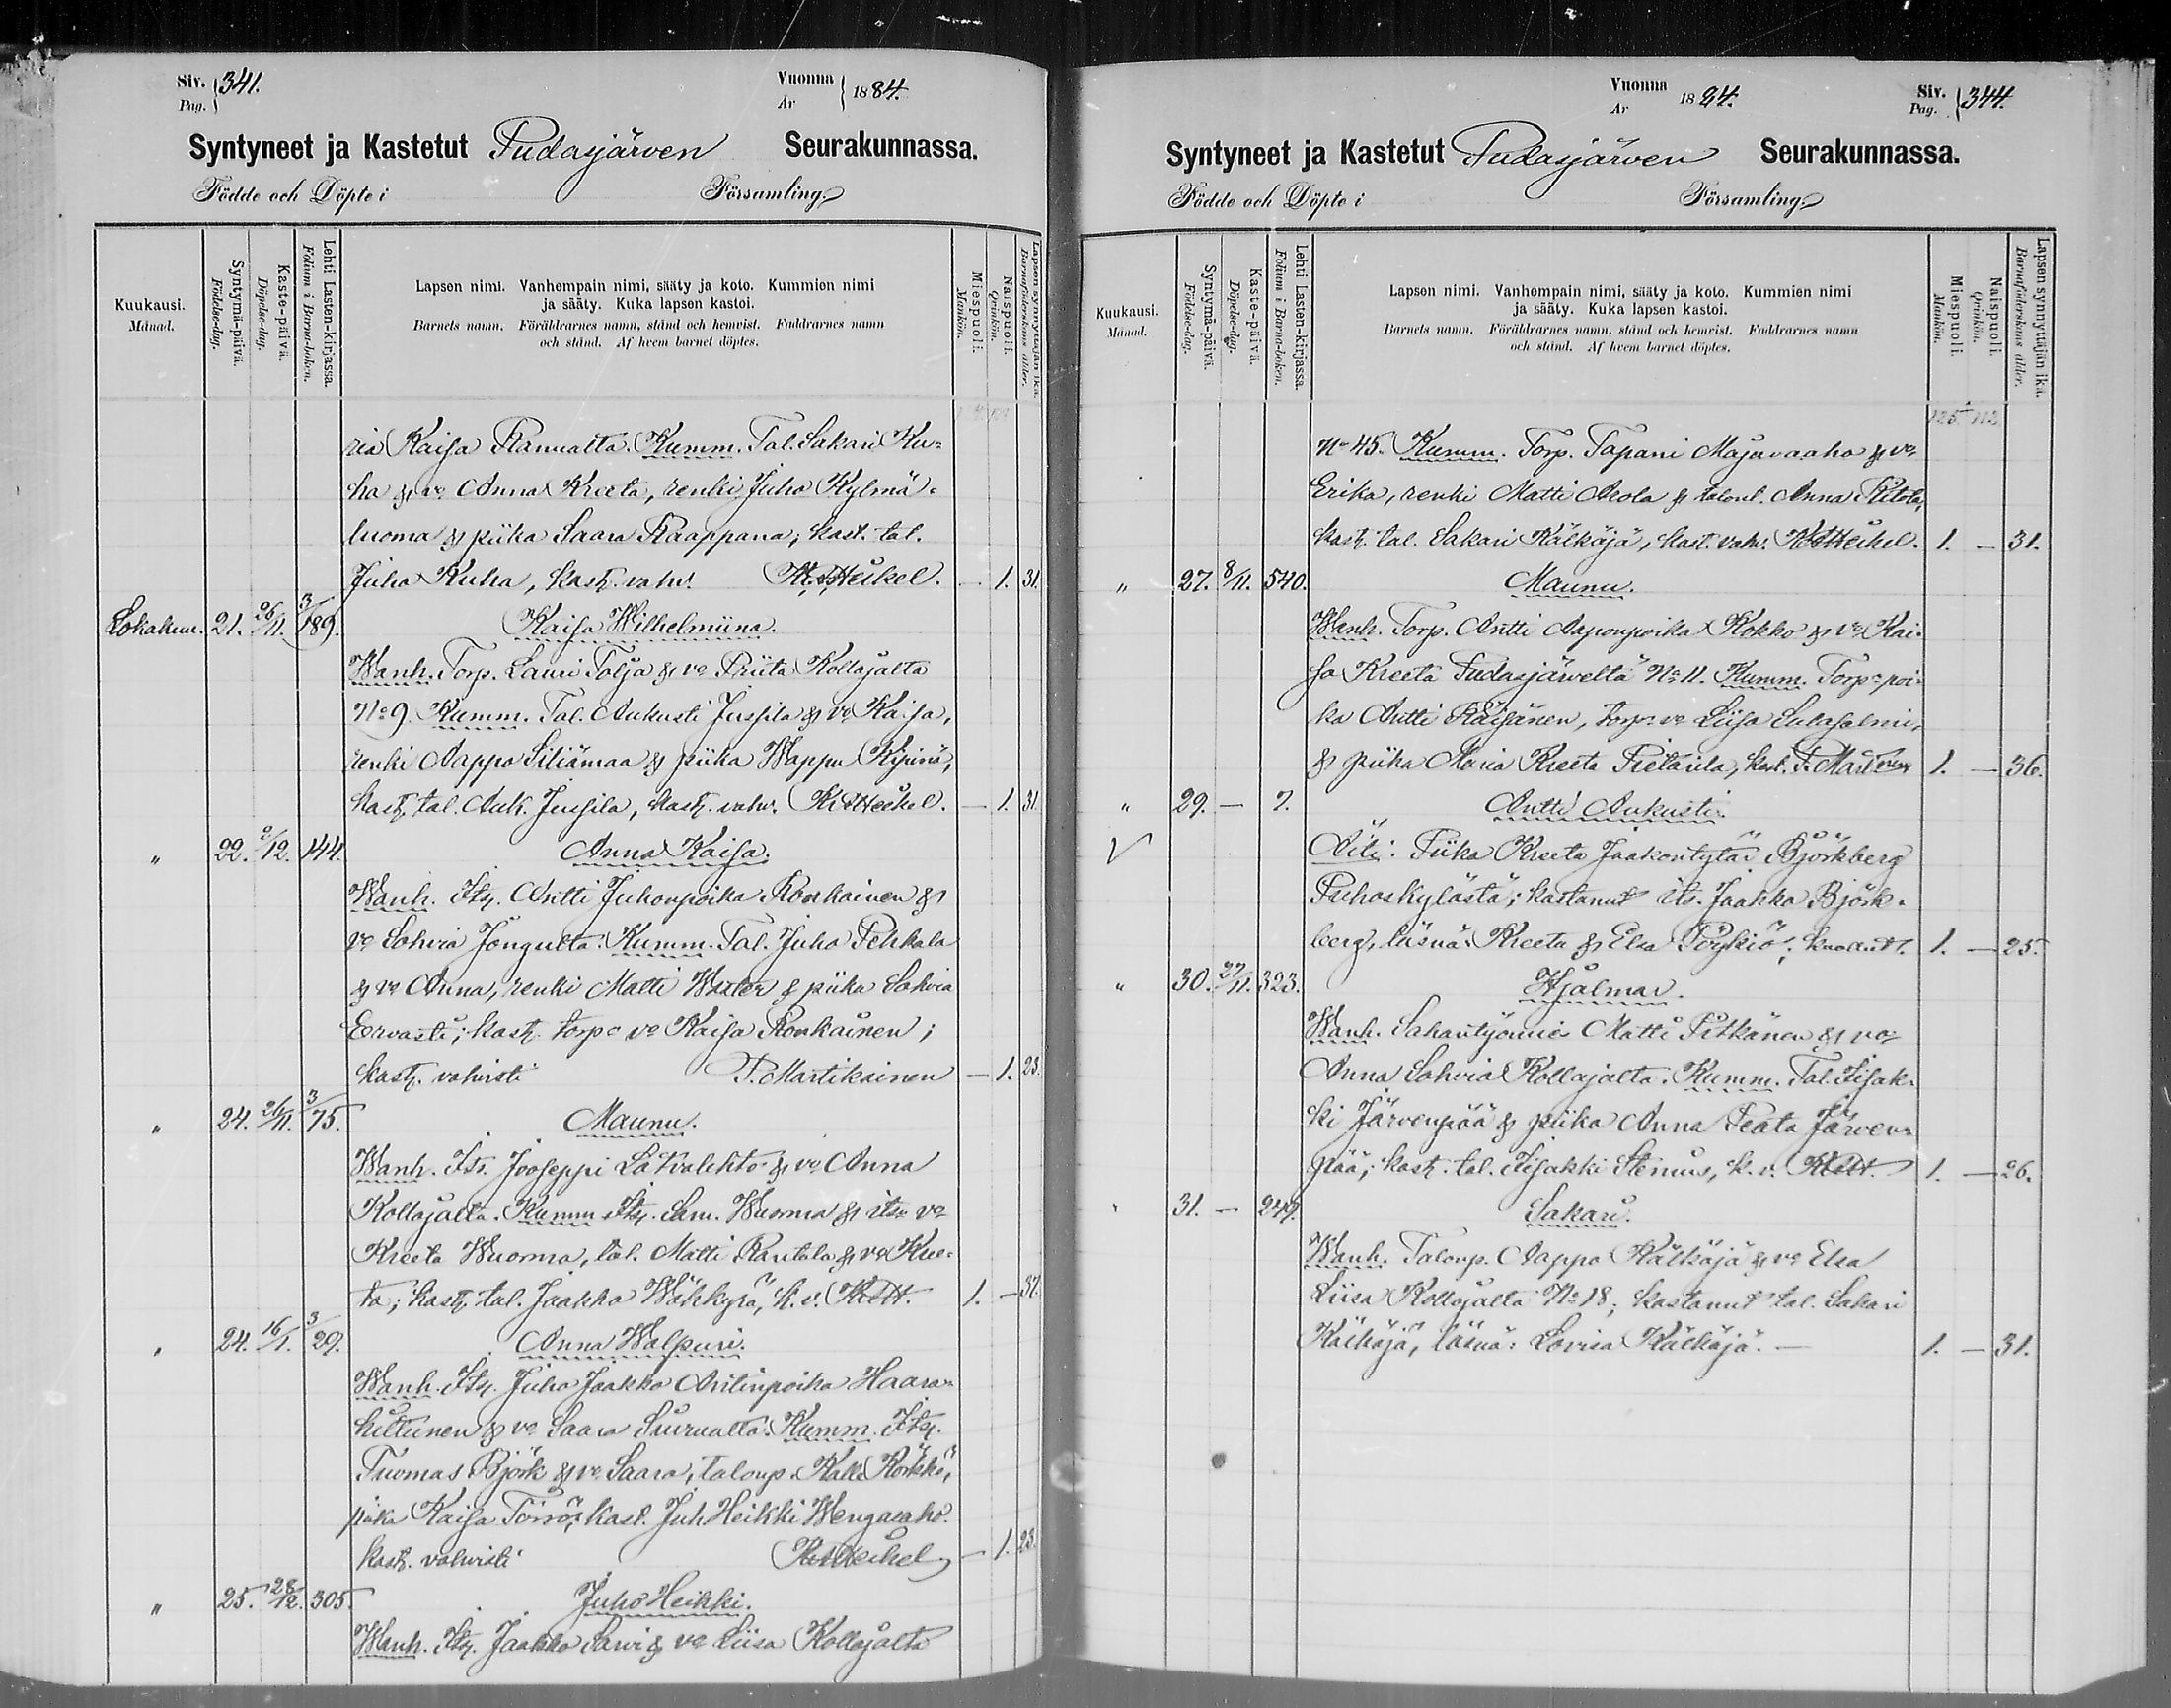 Siv. Pag. 341.
Vuonna År 1884.
Syntyneet ja Kastetut Pudasjärven Seurakunnassa.
Födde och Döpte i Församling.
Kuukausi. Månad.
Syntymä-päivä. Födelse-dag.
Kaste-päivä. Döpelse-dag.
Lehti Lasten-kirjassa. Folium i Barna-boken.
Lapsen nimi. Vanhempain nimi, sääty ja koto. Kummien nimi
ja sääty. Kuka lapsen kastoi.
Barnets namn. Föräldrarnes namn, stånd och hemvist. Faddrarnes namn
och stånd. Af hvem barnet döptes.
Miespuoli. Mankön.
Naispuoli. Qvinkön.
Lapsen synnyttäjän ikä. Barnaföderskans ålder.
ria Kaisa Ranualta. Kumm. Tal. Sakari Ku-
ha & vo Anna Kreeta, renki Juho Kylmä-
luoma & piika Saara Kaappana; kast. tal.
Juho Kuha, kast. vahv. K. A. Heikel. — 1. 31.
Lokakuu. 21. 26/11. 3/189. Kaisa Wilhelmiina.
Wanh. Torp. Lauri Tolja & vo Priita Kollajalta
No 9. Kumm. Tal. Aukusti Jussila & vo Kaisa,
renki Aappo Siliämaa & piika Wappu Kipinä,
kast. tal. Auk. Jussila, kast. vahv. K. A. Heikel. — 1. 31.
" 22. 2/12. 144. Anna Kaisa.
Wanh. Its. Antti Juhonpoika Ronkainen &
vo Sohvia Jongulta. Kumm. Tal. Juho Pehkala
& vo Anna, renki Matti & piika Sohvia
Ervasti; kast. torp. vo Kaisa Ronkainen;
kast. vahvisti P. Martikainen — 1. 23.
" 24. 26/11. 3/75. Maunu.
Wanh. Its. Jooseppi Latvalehto & vo Anna
Kollajalta. Kumm. Its. Sam. Wuorma & its. vo
Kreeta Wuorma, tal. Matti Rantala & vo
ta; kast. tal. Jaakko Wähkyrä, k. v. 1. — 37.
" 24. 16/1. 3/29. Anna Walpuri.
Wanh. Its. Juho Jaakko Antinpoika Haara-
hiltunen & vo Saara Siurualta. Kumm. Its.
Tuomas Björk & vo Saara, talonp. Kalle Körkkö,
piika Kaisa Törrö; kast. Juh. Heikki Wengasaho.
kast. vahvisti K. A. Heikel — 1. 23.
" 25. 28/12. 305. Juho Heikki.
Wanh. Its. Jaakko Sarvi & vo Liisa Kollajalta
Vuonna År 1884.
Siv. Pag. 344.
Syntyneet ja Kastetut Pudasjärven Seurakunnassa.
Födde och Döpte i Församling.
Kuukausi. Månad.
Syntymä-päivä. Födelse-dag.
Kaste-päivä. Döpelse-dag.
Lehti Lasten-kirjassa. Folium i Barna-boken.
Lapsen nimi. Vanhempain nimi, sääty ja koto. Kummien nimi
ja sääty. Kuka lapsen kastoi.
Barnets namn. Föräldrarnes namn, stånd och hemvist. Faddrarnes namn
och stånd. Af hvem barnet döptes.
Miespuoli. Mankön.
Naispuoli. Qvinkön.
Lapsen synnyttäjän ikä. Barnaföderskans ålder.
125 112
No 45. Kumm. Torp. Tapani Majavaaho & vo
Erika, renki Matti Aeola & talont. Anna Ritola,
kast. tal. Sakari Kälkäjä, kast. vahv. K. A. Heikel. 1. — 31.
" 27. 8/11. 540. Maunu.
Wanh. Torp. Antti Aaponpoika Kokko & vo Kai-
sa Kreeta Pudasjärveltä No 11. Kumm. Torp. poi-
ka Antti Räisänen, torp. vo Liisa Sulasalmi,
& piika Maria Kreeta Pietarila, kast. P. Martikainen 1. — 36.
" 29. — 7. Antti Aukusti.
Äiti: Piika Kreeta Jaakontytär Björkberg
Puhoskylästä; kastanut its. Jaakko Björk-
berg, läsnä: Kreeta & Elsa Pöykiö; 1. — 25.
" 30. 22/11. 323. Hjalmar.
Wanh. Sahantyömies Matti Pitkänen & vo
Anna Sohvia Kollajalta. Kumm. Tal. Iisak-
ki Järvenpää & piika Anna Peata Järven-
pää; kast. tal. Iisakki Stenius, k. v. 1. — 26.
" 31. — 249. Sakari.
Wanh. Talonp. Aappo Kälkäjä & vo Elsa
Liisa Kollajalta No 18; kastanut tal. Sakari
Kälkäjä, läsnä: Lovisa Kälkäjä. — 1. — 31.